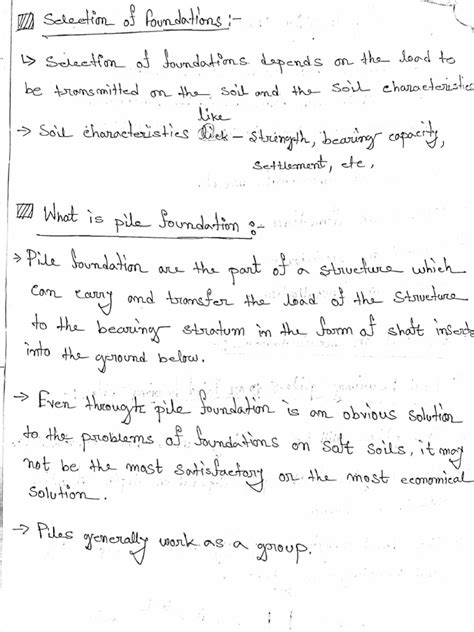 Selection of Foundations :-
↳ Selection of foundations depends on the load to
be transmitted on the soil and the soil characteristics
like
→ Soil characteristics - strength, bearing capacity,
settlement, etc.
What is pile foundation :-
→ Pile foundation are the part of a structure which
can carry and transfer the load of the structure
to the bearing stratum in the form of shaft inserts
into the ground below.
→ Even through pile foundation is an obvious solution
to the problems of foundations on soft soils, it may
not be the most satisfactory or the most economical
solution.
→ Piles generally work as a group.